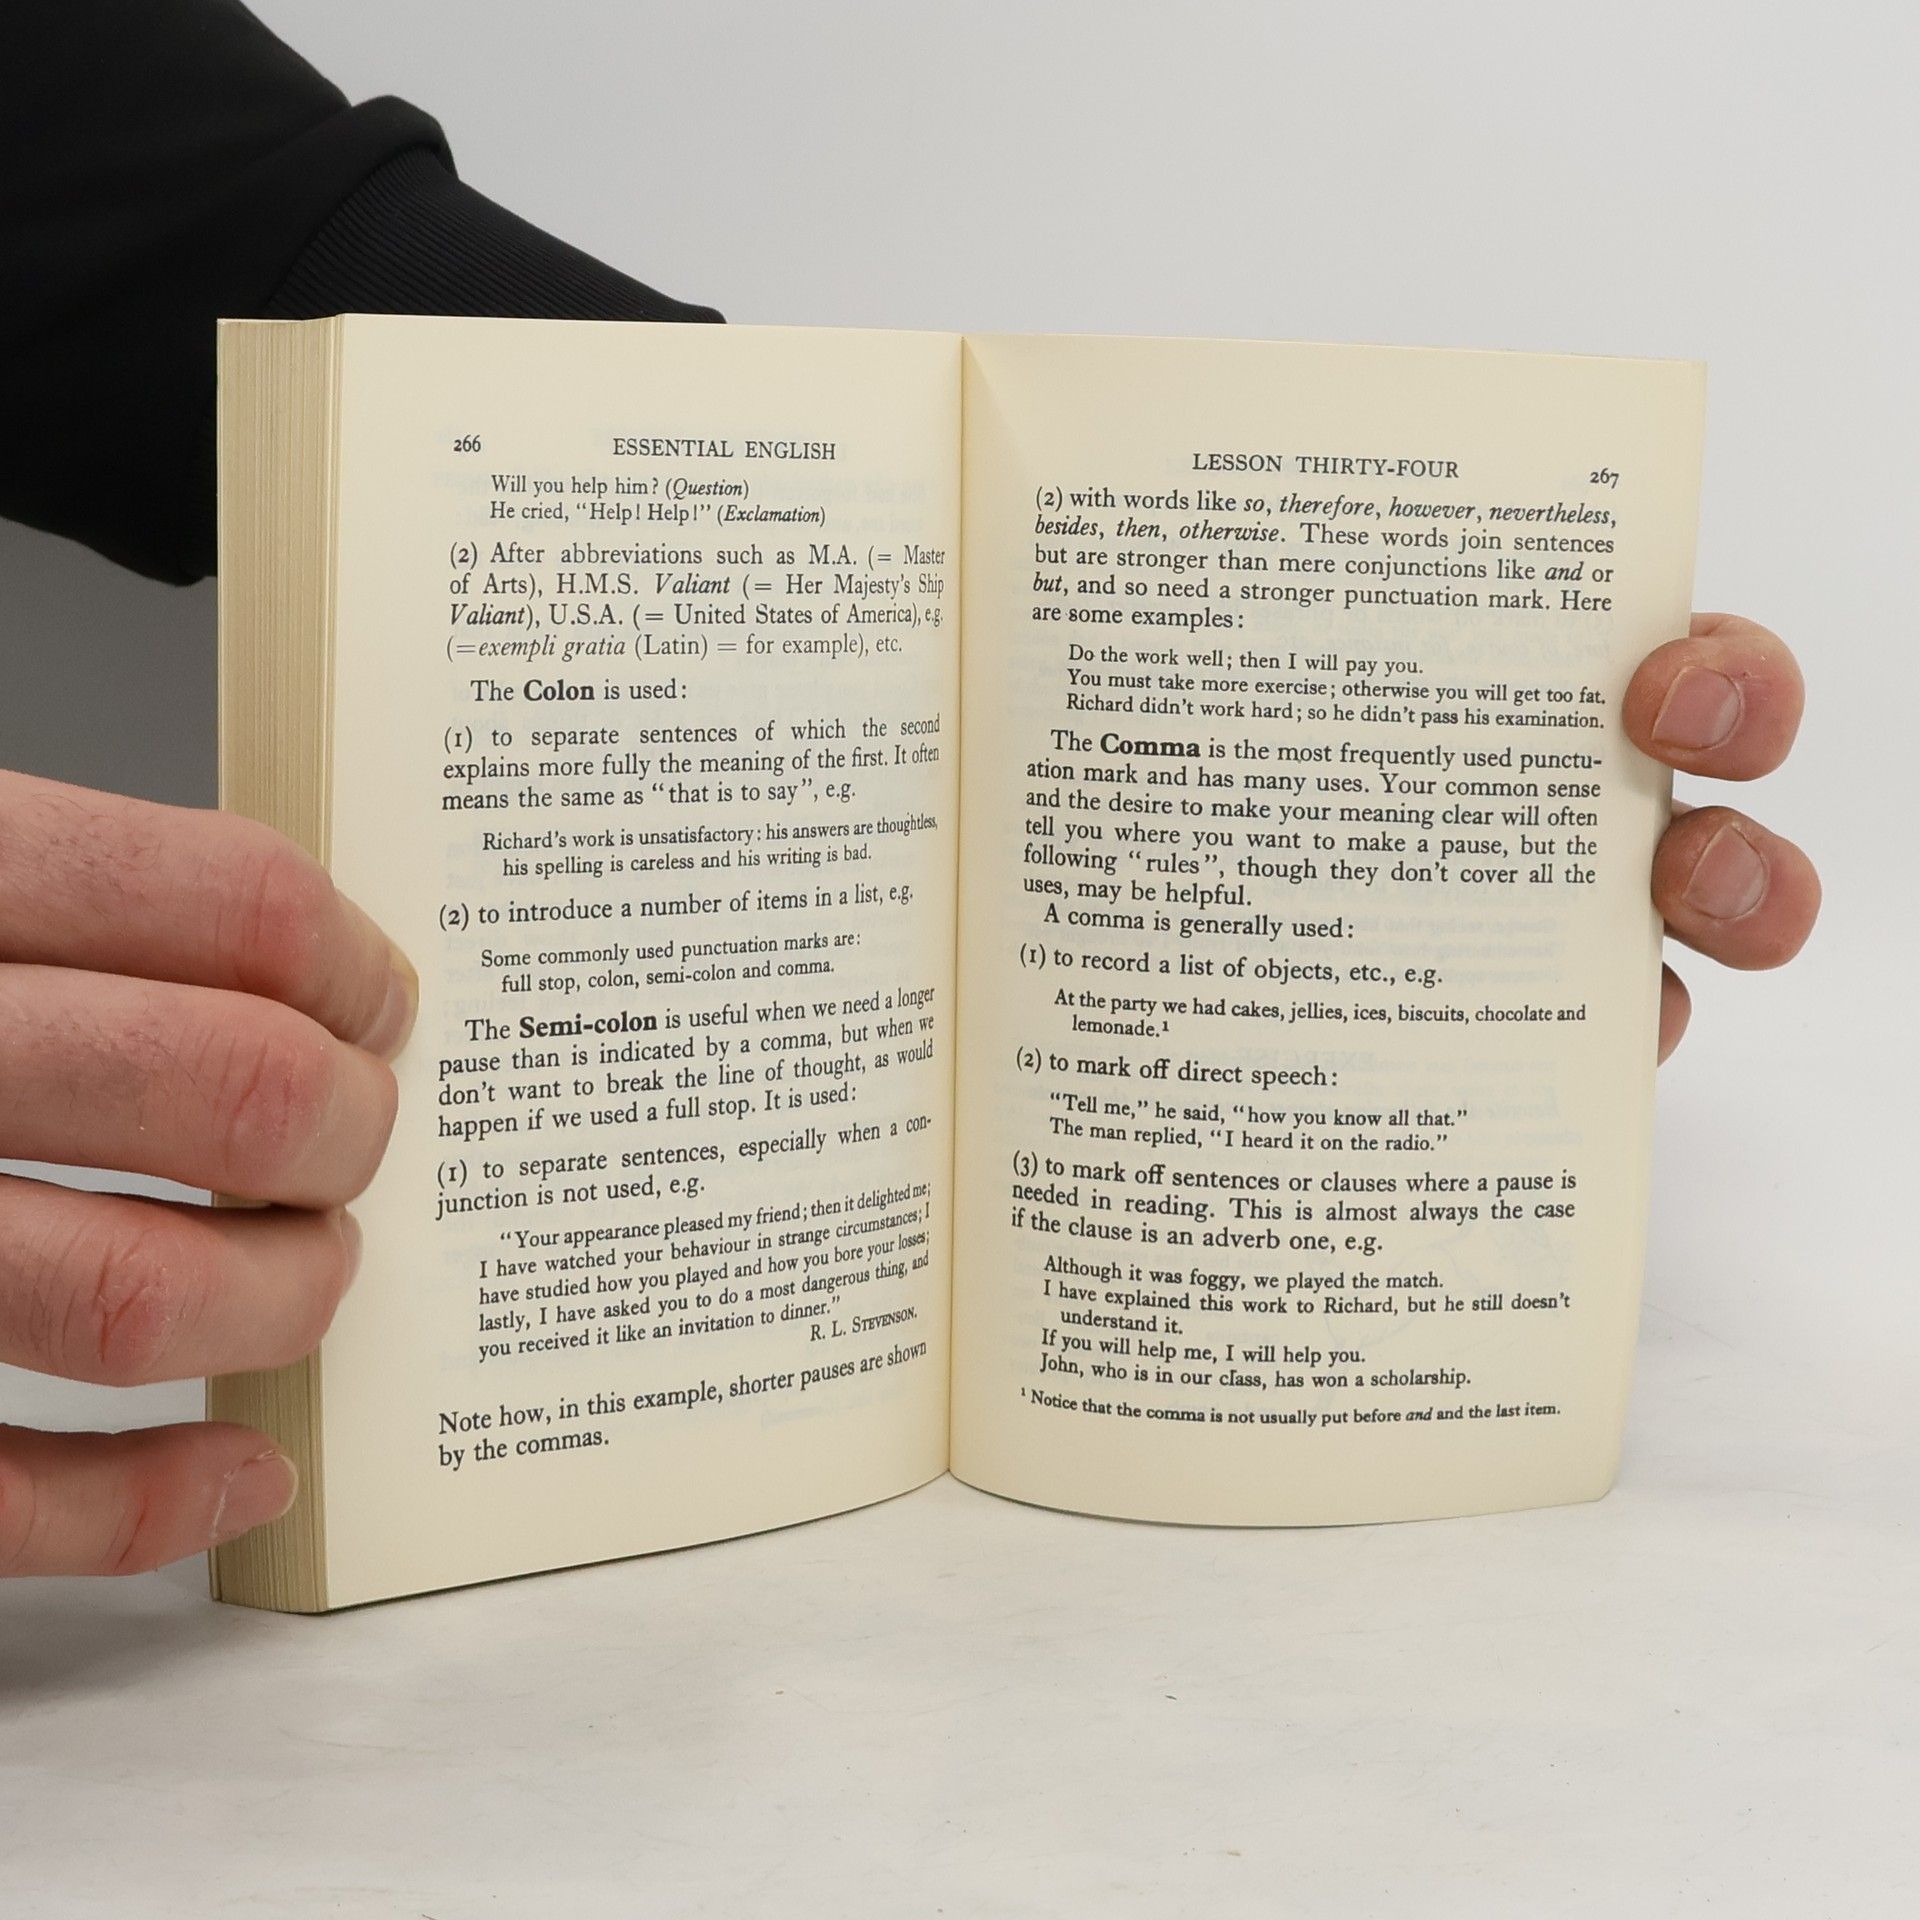 266 ESSENTIAL ENGLISH
Will you help him? (Question)
He cried, “Help! Help!” (Exclamation)
(2) After abbreviations such as M.A. (= Master
of Arts), H.M.S. Valiant (= Her Majesty’s Ship
Valiant), U.S.A. (= United States of America), e.g.
(=exempli gratia (Latin) = for example), etc.
The Colon is used:
(1) to separate sentences of which the second
explains more fully the meaning of the first. It often
means the same as “that is to say”, e.g.
Richard’s work is unsatisfactory: his answers are thoughtless,
his spelling is careless and his writing is bad.
(2) to introduce a number of items in a list, e.g.
Some commonly used punctuation marks are:
full stop, colon, semi-colon and comma.
The Semi-colon is useful when we need a longer
pause than is indicated by a comma, but when we
don’t want to break the line of thought, as would
happen if we used a full stop. It is used:
(1) to separate sentences, especially when a con-
junction is not used, e.g.
“Your appearance pleased my friend; then it delighted me;
I have watched your behaviour in strange circumstances; I
have studied how you played and how you bore your losses;
lastly, I have asked you to do a most dangerous thing, and
you received it like an invitation to dinner.”
R. L. STEVENSON.
Note how, in this example, shorter pauses are shown
by the commas.
LESSON THIRTY-FOUR 267
(2) with words like so, therefore, however, nevertheless,
besides, then, otherwise. These words join sentences
but are stronger than mere conjunctions like and or
but, and so need a stronger punctuation mark. Here
are some examples:
Do the work well; then I will pay you.
You must take more exercise; otherwise you will get too fat.
Richard didn’t work hard; so he didn’t pass his examination.
The Comma is the most frequently used punctu-
ation mark and has many uses. Your common sense
and the desire to make your meaning clear will often
tell you where you want to make a pause, but the
following “rules”, though they don’t cover all the
uses, may be helpful.
A comma is generally used:
(1) to record a list of objects, etc., e.g.
At the party we had cakes, jellies, ices, biscuits, chocolate and
lemonade.¹
(2) to mark off direct speech:
“Tell me,” he said, “how you know all that.”
The man replied, “I heard it on the radio.”
(3) to mark off sentences or clauses where a pause is
needed in reading. This is almost always the case
if the clause is an adverb one, e.g.
Although it was foggy, we played the match.
I have explained this work to Richard, but he still doesn’t
understand it.
If you will help me, I will help you.
John, who is in our class, has won a scholarship.
¹ Notice that the comma is not usually put before and and the last item.